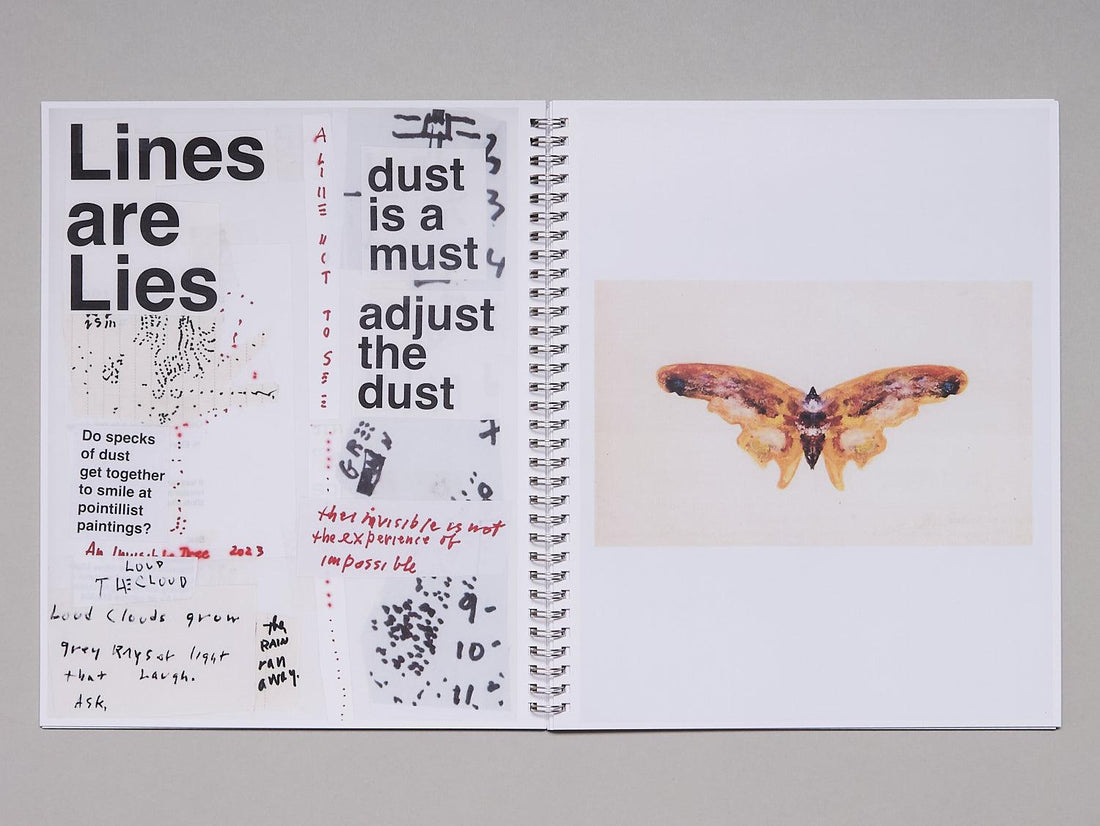 Lines
are
Lies
isin
Do specks
of dust
get together
to smile at
pointillist
paintings?
An Invisible Tree 2023
LOUD
THE CLOUD
Loud Clouds grow
grey Rays of light
that Laugh.
ASK,
the
RAIN
ran
away.
A LINE NOT TO SEE
dust
is a
must
3
3
4
adjust
the
dust
the invisible is not
the experience of
impossible
9-
10-
11.